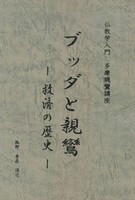 仏教学入門 多摩親鸞講座
ブッダと親鸞
― 救済の歴史 ―